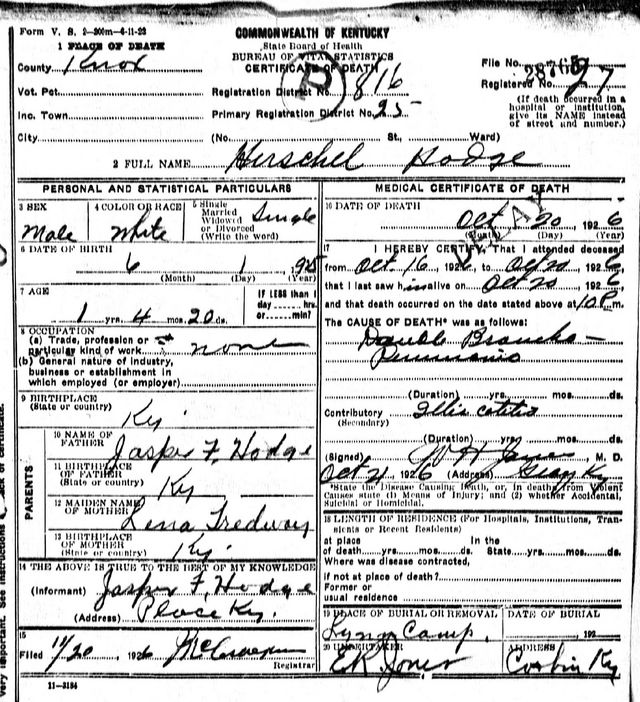 Form V. S. 2-200m-4-11-23
COMMONWEALTH OF KENTUCKY
State Board of Health
BUREAU OF VITAL STATISTICS
CERTIFICATE OF DEATH
1 PLACE OF DEATH
County Knox
File No.
Registered No. 27
Vot. Pct.
Registration District No. 816
(If death occurred in a hospital or institution, give its NAME instead of street and number.)
Inc. Town
Primary Registration District No. 25
City (No. St., Ward)
2 FULL NAME Herschel Hodge
PERSONAL AND STATISTICAL PARTICULARS
3 SEX Male
4 COLOR OR RACE White
5 Single Married Widowed or Divorced (Write the word) Single
6 DATE OF BIRTH
6 1
(Month) (Day) (Year)
7 AGE
1 yrs. 4 mos. 20 ds.
IF LESS than 1 day hrs. or min?
8 OCCUPATION
(a) Trade, profession or particular kind of work none
(b) General nature of industry, business or establishment in which employed (or employer)
9 BIRTHPLACE
(State or country) Ky.
PARENTS
10 NAME OF FATHER Jasper F. Hodge
11 BIRTHPLACE OF FATHER (State or country) Ky
12 MAIDEN NAME OF MOTHER Lena Tredway
13 BIRTHPLACE OF MOTHER (State or country) Ky.
14 THE ABOVE IS TRUE TO THE BEST OF MY KNOWLEDGE
(Informant) Jasper F. Hodge
(Address) Place Ky.
15
Filed 11/20 1926
Registrar
11-3184
MEDICAL CERTIFICATE OF DEATH
DELAY
16 DATE OF DEATH
Oct 20 1926
(Month) (Day) (Year)
17 I HEREBY CERTIFY, That I attended deceased
from Oct 16, 1926, to Oct 20 1926,
that I last saw him alive on Oct 20, 1926,
and that death occurred on the date stated above at 10 P m.
The CAUSE OF DEATH* was as follows:
Double Broncho-
Pneumonia
(Duration) yrs. mos. ds.
Contributory Illio colitis
(Secondary)
(Duration) yrs. mos. ds.
(Signed) , M. D.
Oct 21 1926 (Address) Gray Ky
*State the Disease Causing Death, or, in deaths from Violent Causes state (1) Means of Injury; and (2) whether Accidental, Suicidal or Homicidal.
18 LENGTH OF RESIDENCE (For Hospitals, Institutions, Transients or Recent Residents)
at place of death yrs. mos. ds. In the State yrs. mos. ds.
Where was disease contracted, if not at place of death?
Former or usual residence
19 PLACE OF BURIAL OR REMOVAL
DATE OF BURIAL
Lynn Camp, 192
20 UNDERTAKER
ADDRESS
E.K. Jones Corbin Ky